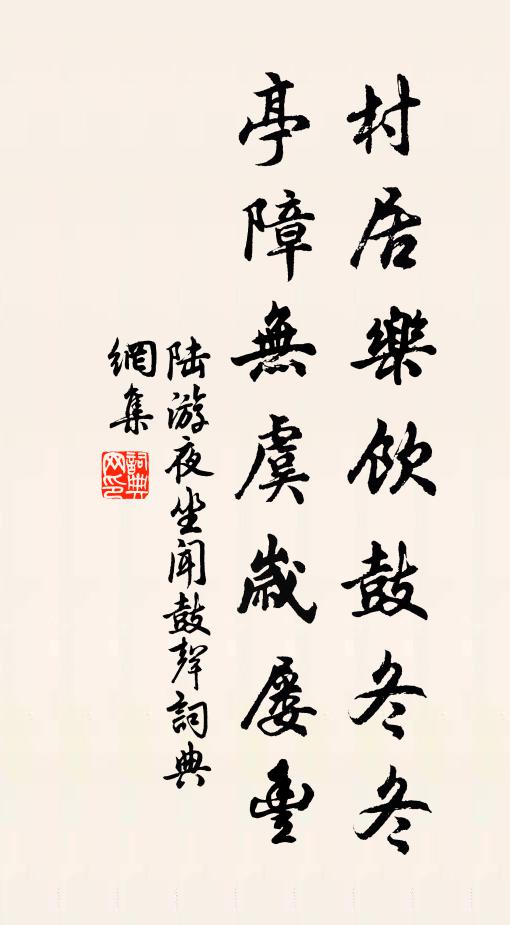 村居樂飲鼓冬冬
亭障無虞歲屡豊
陆游夜坐闻鼓聲詞典
網集
詞典網印